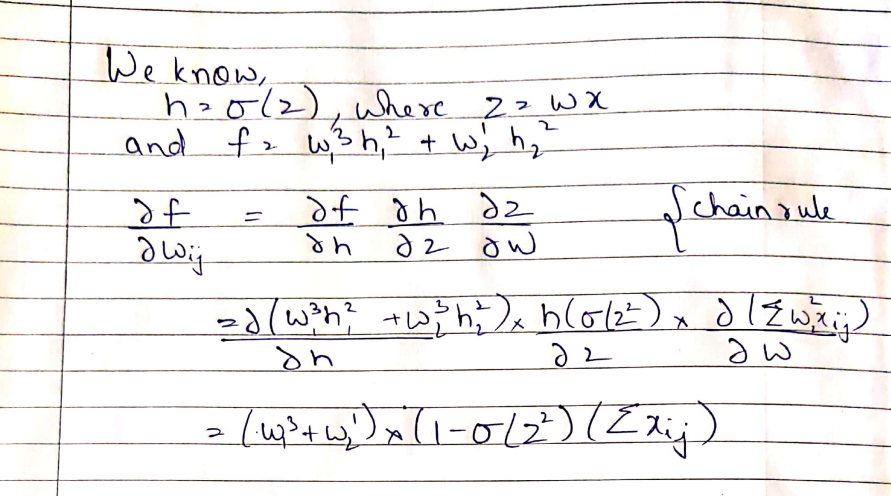 We know,
h = σ(z), where z = wx
and f = w₁³ h₁² + w₂¹ h₂²
∂f/∂wᵢⱼ = ∂f/∂h ∂h/∂z ∂z/∂w { chain rule
= ∂(w₁³h₁² + w₂³h₂²)/∂h × h(σ(z²)/∂z × ∂(Σwᵢ²xᵢⱼ)/∂w
= (w₁³ + w₂¹) × (1 - σ(z²) (Σ xᵢⱼ)